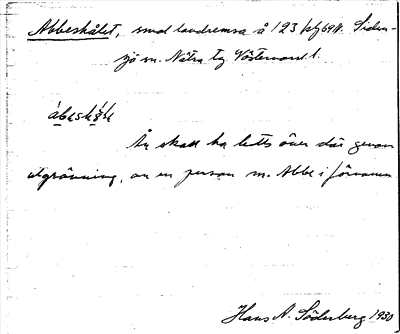 Abbeskälet, smal landremsa å 123 Siden-
sjö sn. Nätra tg Västernorrl.
ábeskḁ̈le
Ån skall ha letts över där genom
utgrävning, av en person m. Abbe i förnamn
Hans N. Söderberg 1930